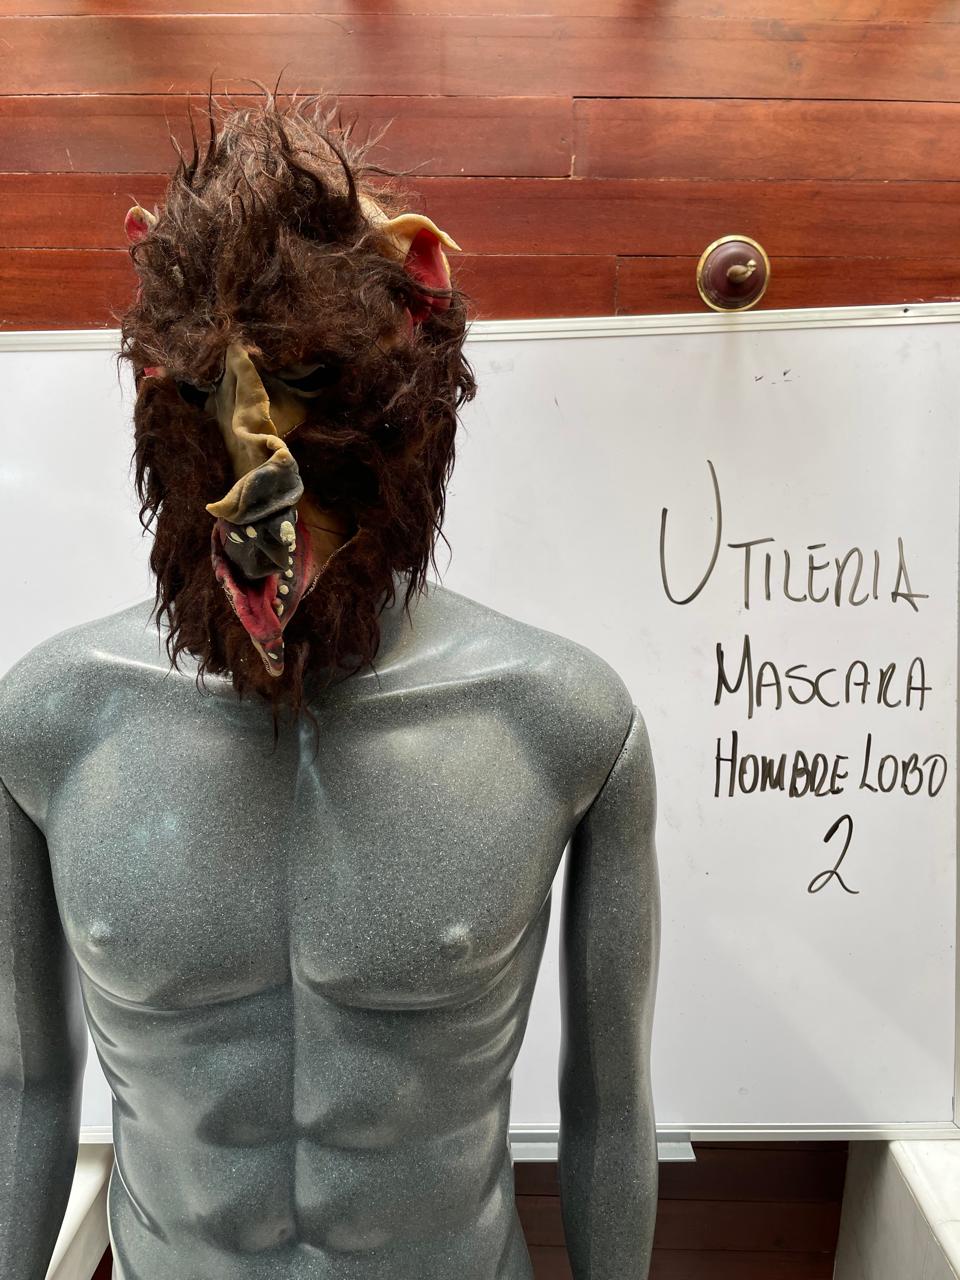 UTILERIA
MASCARA
HOMBRE LOBO
2